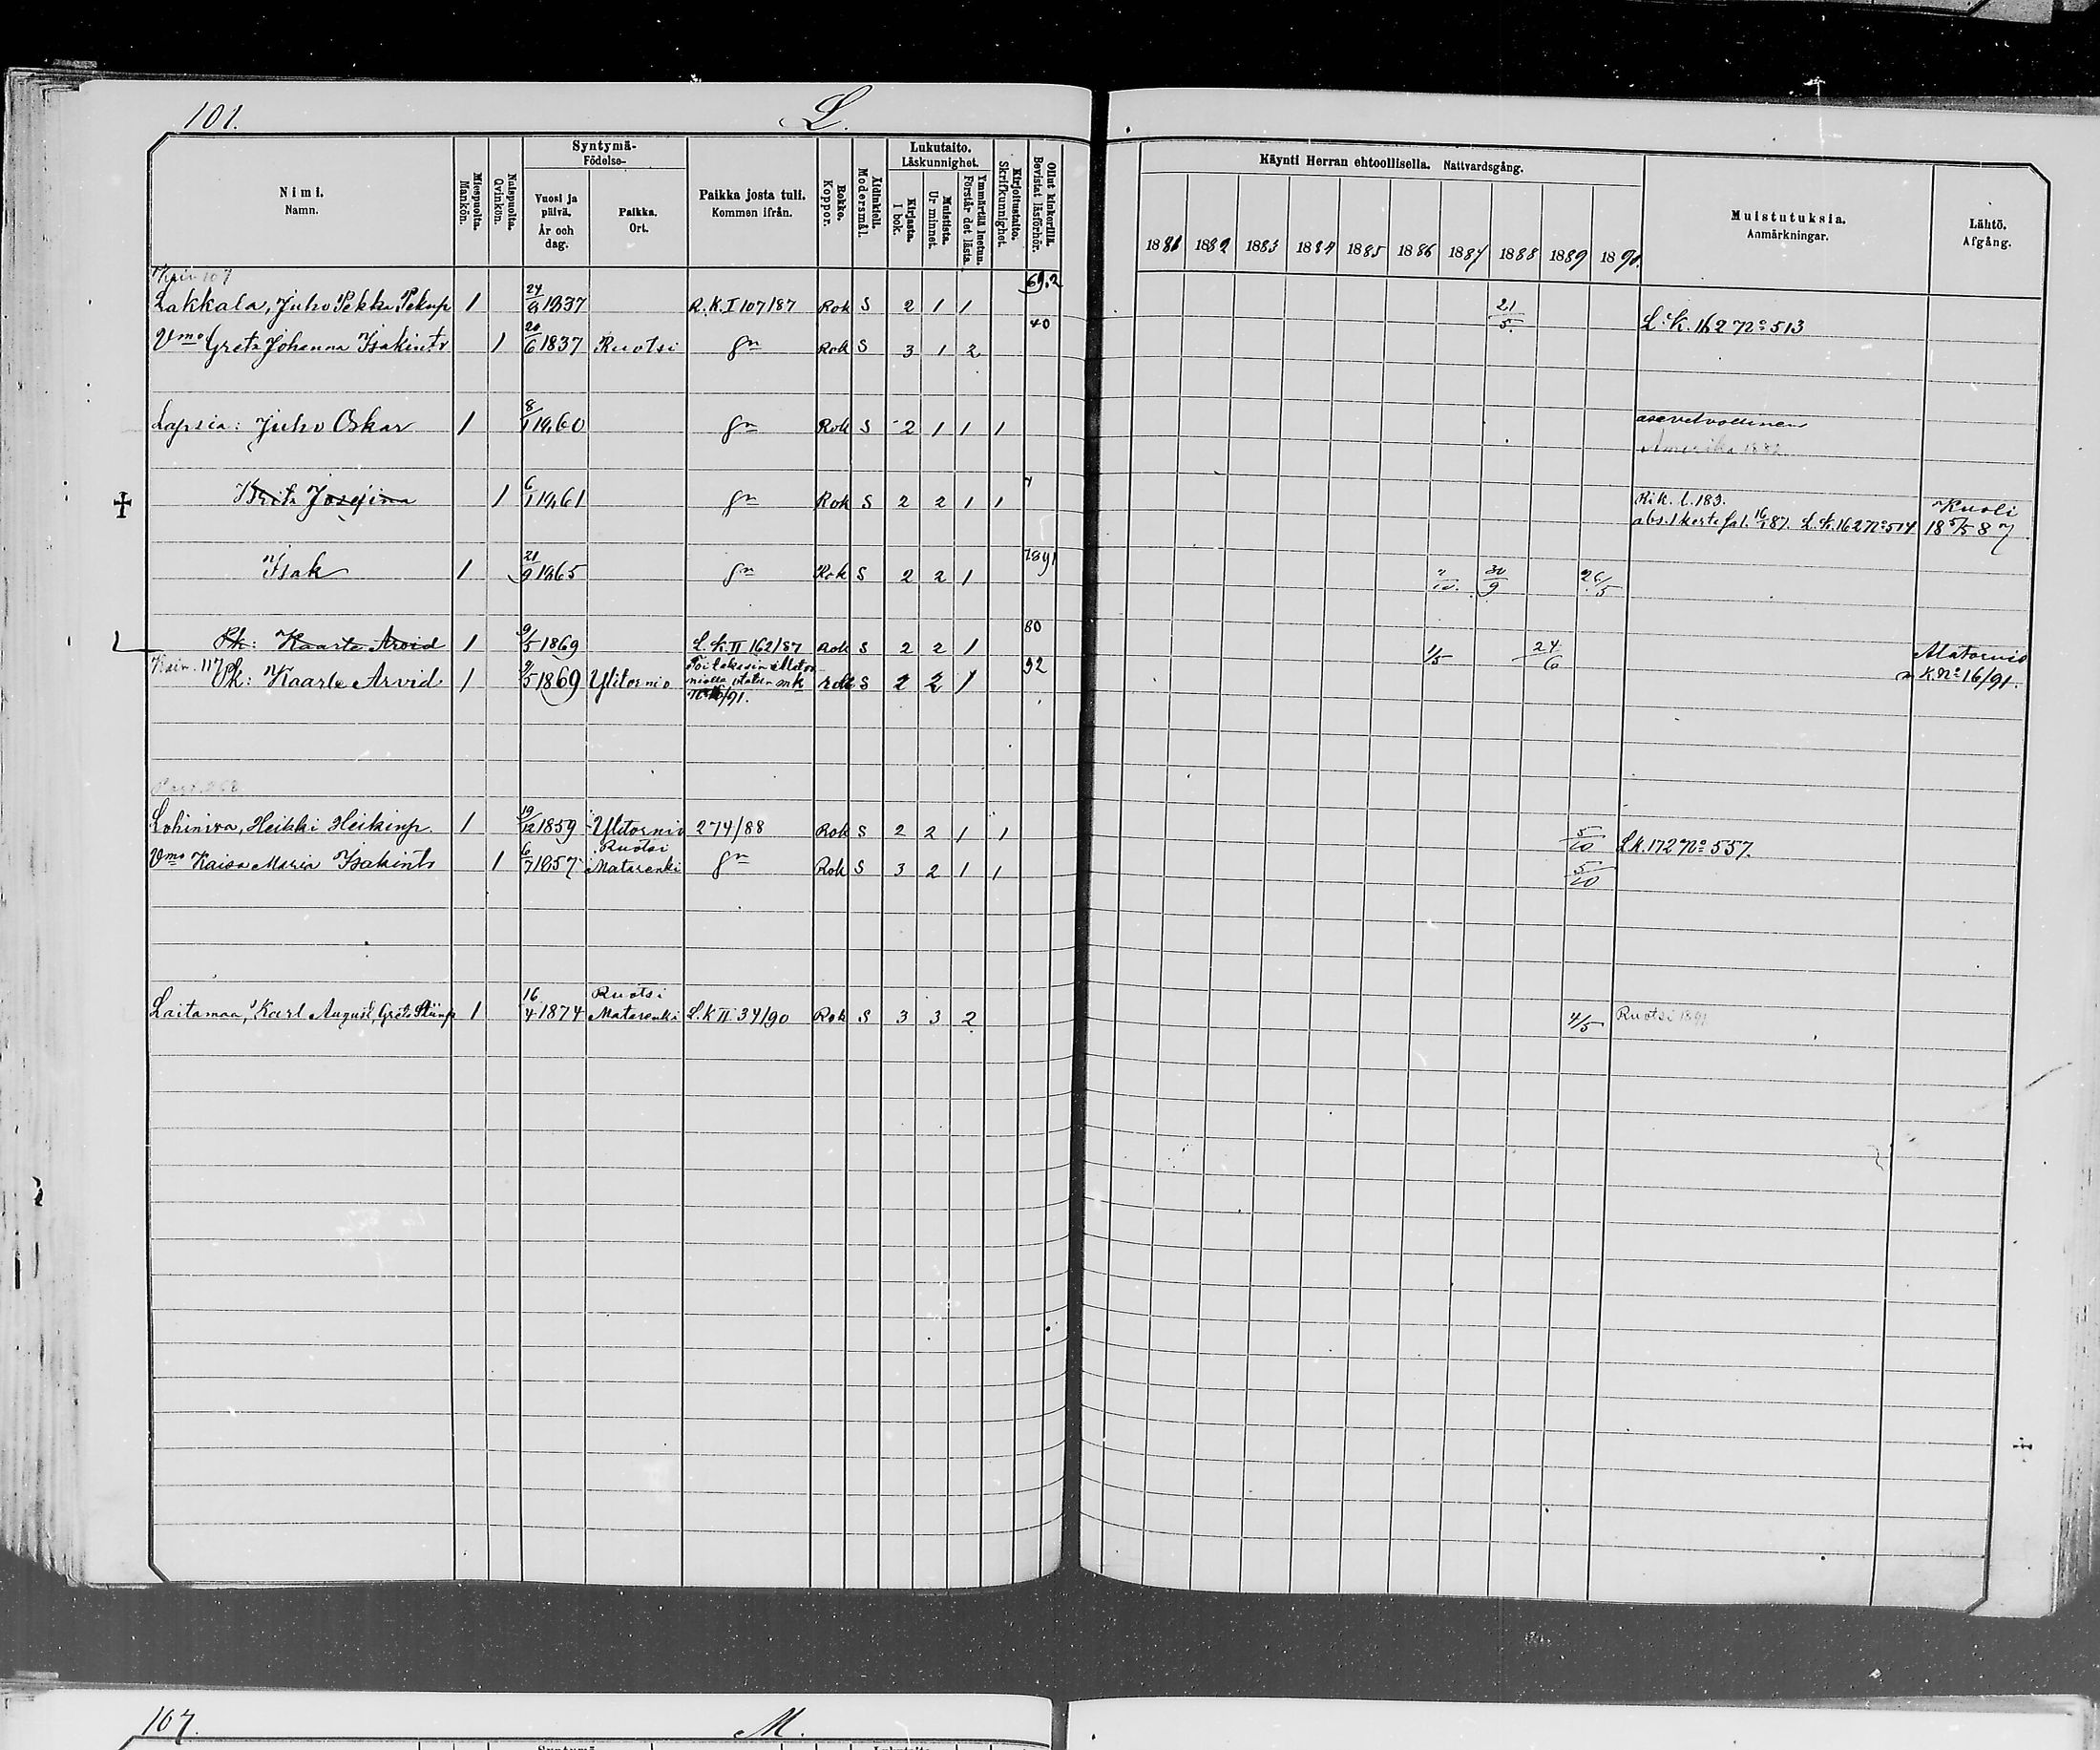 101.
L.
Nimi.
Namn.
Miespuolta.
Mankön.
Naispuolta.
Qvinkön.
Syntymä-
Födelse-
Vuosi ja
päivä.
År och
dag.
Paikka.
Ort.
Paikka josta tuli.
Kommen ifrån.
Rokko.
Koppor.
Äidinkieli.
Modersmål.
Lukutaito.
Läskunnighet.
Kirjasta.
I bok.
Muistista.
Ur minnet.
Ymmärtää luetun.
Förstår det lästa.
Kirjoitustaito.
Skrifkunnighet.
Ollut kinkerillä.
Bevistat läsförhör.
Käynti Herran ehtoollisella. Nattvardsgång.
1881 1882 1883 1884 1885 1886 1887 1888 1889 1890.
Muistutuksia.
Anmärkningar.
Lähtö.
Afgång.
Kain 107
Lakkala, Juho Pekka Pekanp 1 24/9 1837 R.K.I 107/87 Rok S 2 1 1 21/5. L.K. 162 No 513
Vmo Greta Johanna Isakintr 1 20/6 1837 Ruotsi Rok S 3 1 2 40
Lapsia: Juho Oskar 1 8/1 1860 Rok S 2 1 1 1 asevelvollinen
Amerika
Brita Josefina 1 6/1 1861 Rok S 2 2 1 1 Rik. l. 183. Kuoli
L.K. 162 No 514 18 5/5 87
Isak 1 21/9 1865 Rok S 2 2 1 30/9 26/5
Pk: Kaarle Arvid 1 9/5 1869 L.K. II 162/87 Rok S 2 2 1 80 1/5 24/6 Alatornio
Kain. 117 Pk: Kaarle Arvid 1 9/5 1869 Ylitornio mk rok S 2 2 1 92 K No 16/91.
Lohiniva, Heikki Heikinp. 1 19/12 1859 Ylitornio 274/88 Rok S 2 2 1 1 5/10 Lk. 172 No 557.
Ruotsi
Vmo Kaisa Maria Isakintr 1 6/7 1857 Matarenki Rok S 3 2 1 1 5/10
Ruotsi
Laitamaa, Karl August, Greta 1 16/4 1874 Matarenki L.K II 34/90 Rok S 3 3 2 4/5 Ruotsi 1891
167.
M.